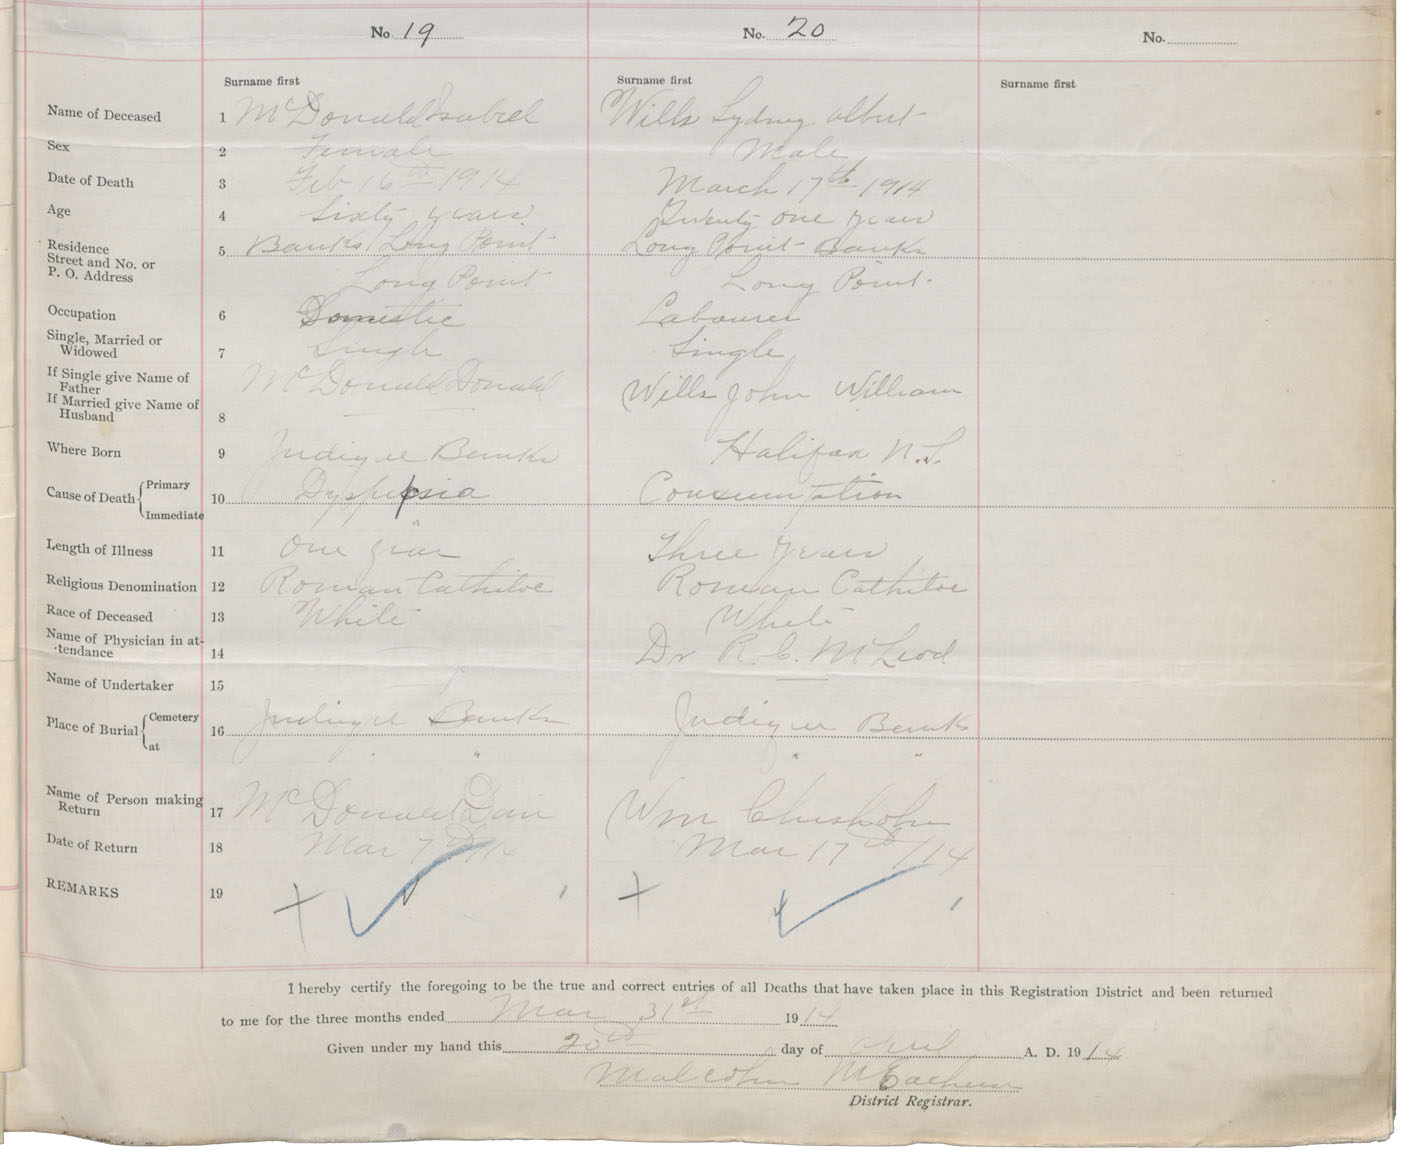 No. 19 No. 20 No.
Surname first Surname first Surname first
Name of Deceased 1 McDonald Isabel Wills Sydney Albert
Sex 2 Female Male
Date of Death 3 Feb 16th 1914 March 17th 1914
Age 4 Sixty years Twenty one years
Residence
Street and No. or 5 Banks Long Point Long Point Banks
P. O. Address Long Point Long Point.
Occupation 6 Domestic Labourer
Single, Married or
Widowed 7 Single Single
If Single give Name of
Father McDonald Donald Wills John William
If Married give Name of
Husband 8
Where Born 9 Judique Banks Halifax N.S.
Cause of Death { Primary
10 Dyspepsia Consumption
Immediate "
Length of Illness 11 One year Three years
Religious Denomination 12 Roman Catholic Roman Catholic
Race of Deceased 13 White White
Name of Physician in at-
tendance 14 Dr R. C. McLeod
Name of Undertaker 15
Place of Burial { Cemetery 16 Judique Banks Judique Banks
at " " " "
Name of Person making
Return 17 McDonald Dan Wm Chisholm
Date of Return 18 Mar 7th/14 Mar 17th/14
REMARKS 19
I hereby certify the foregoing to be the true and correct entries of all Deaths that have taken place in this Registration District and been returned
to me for the three months ended Mar 31st 1914
Given under my hand this 20th day of April A. D. 1914
Malcolm McEachern
District Registrar.